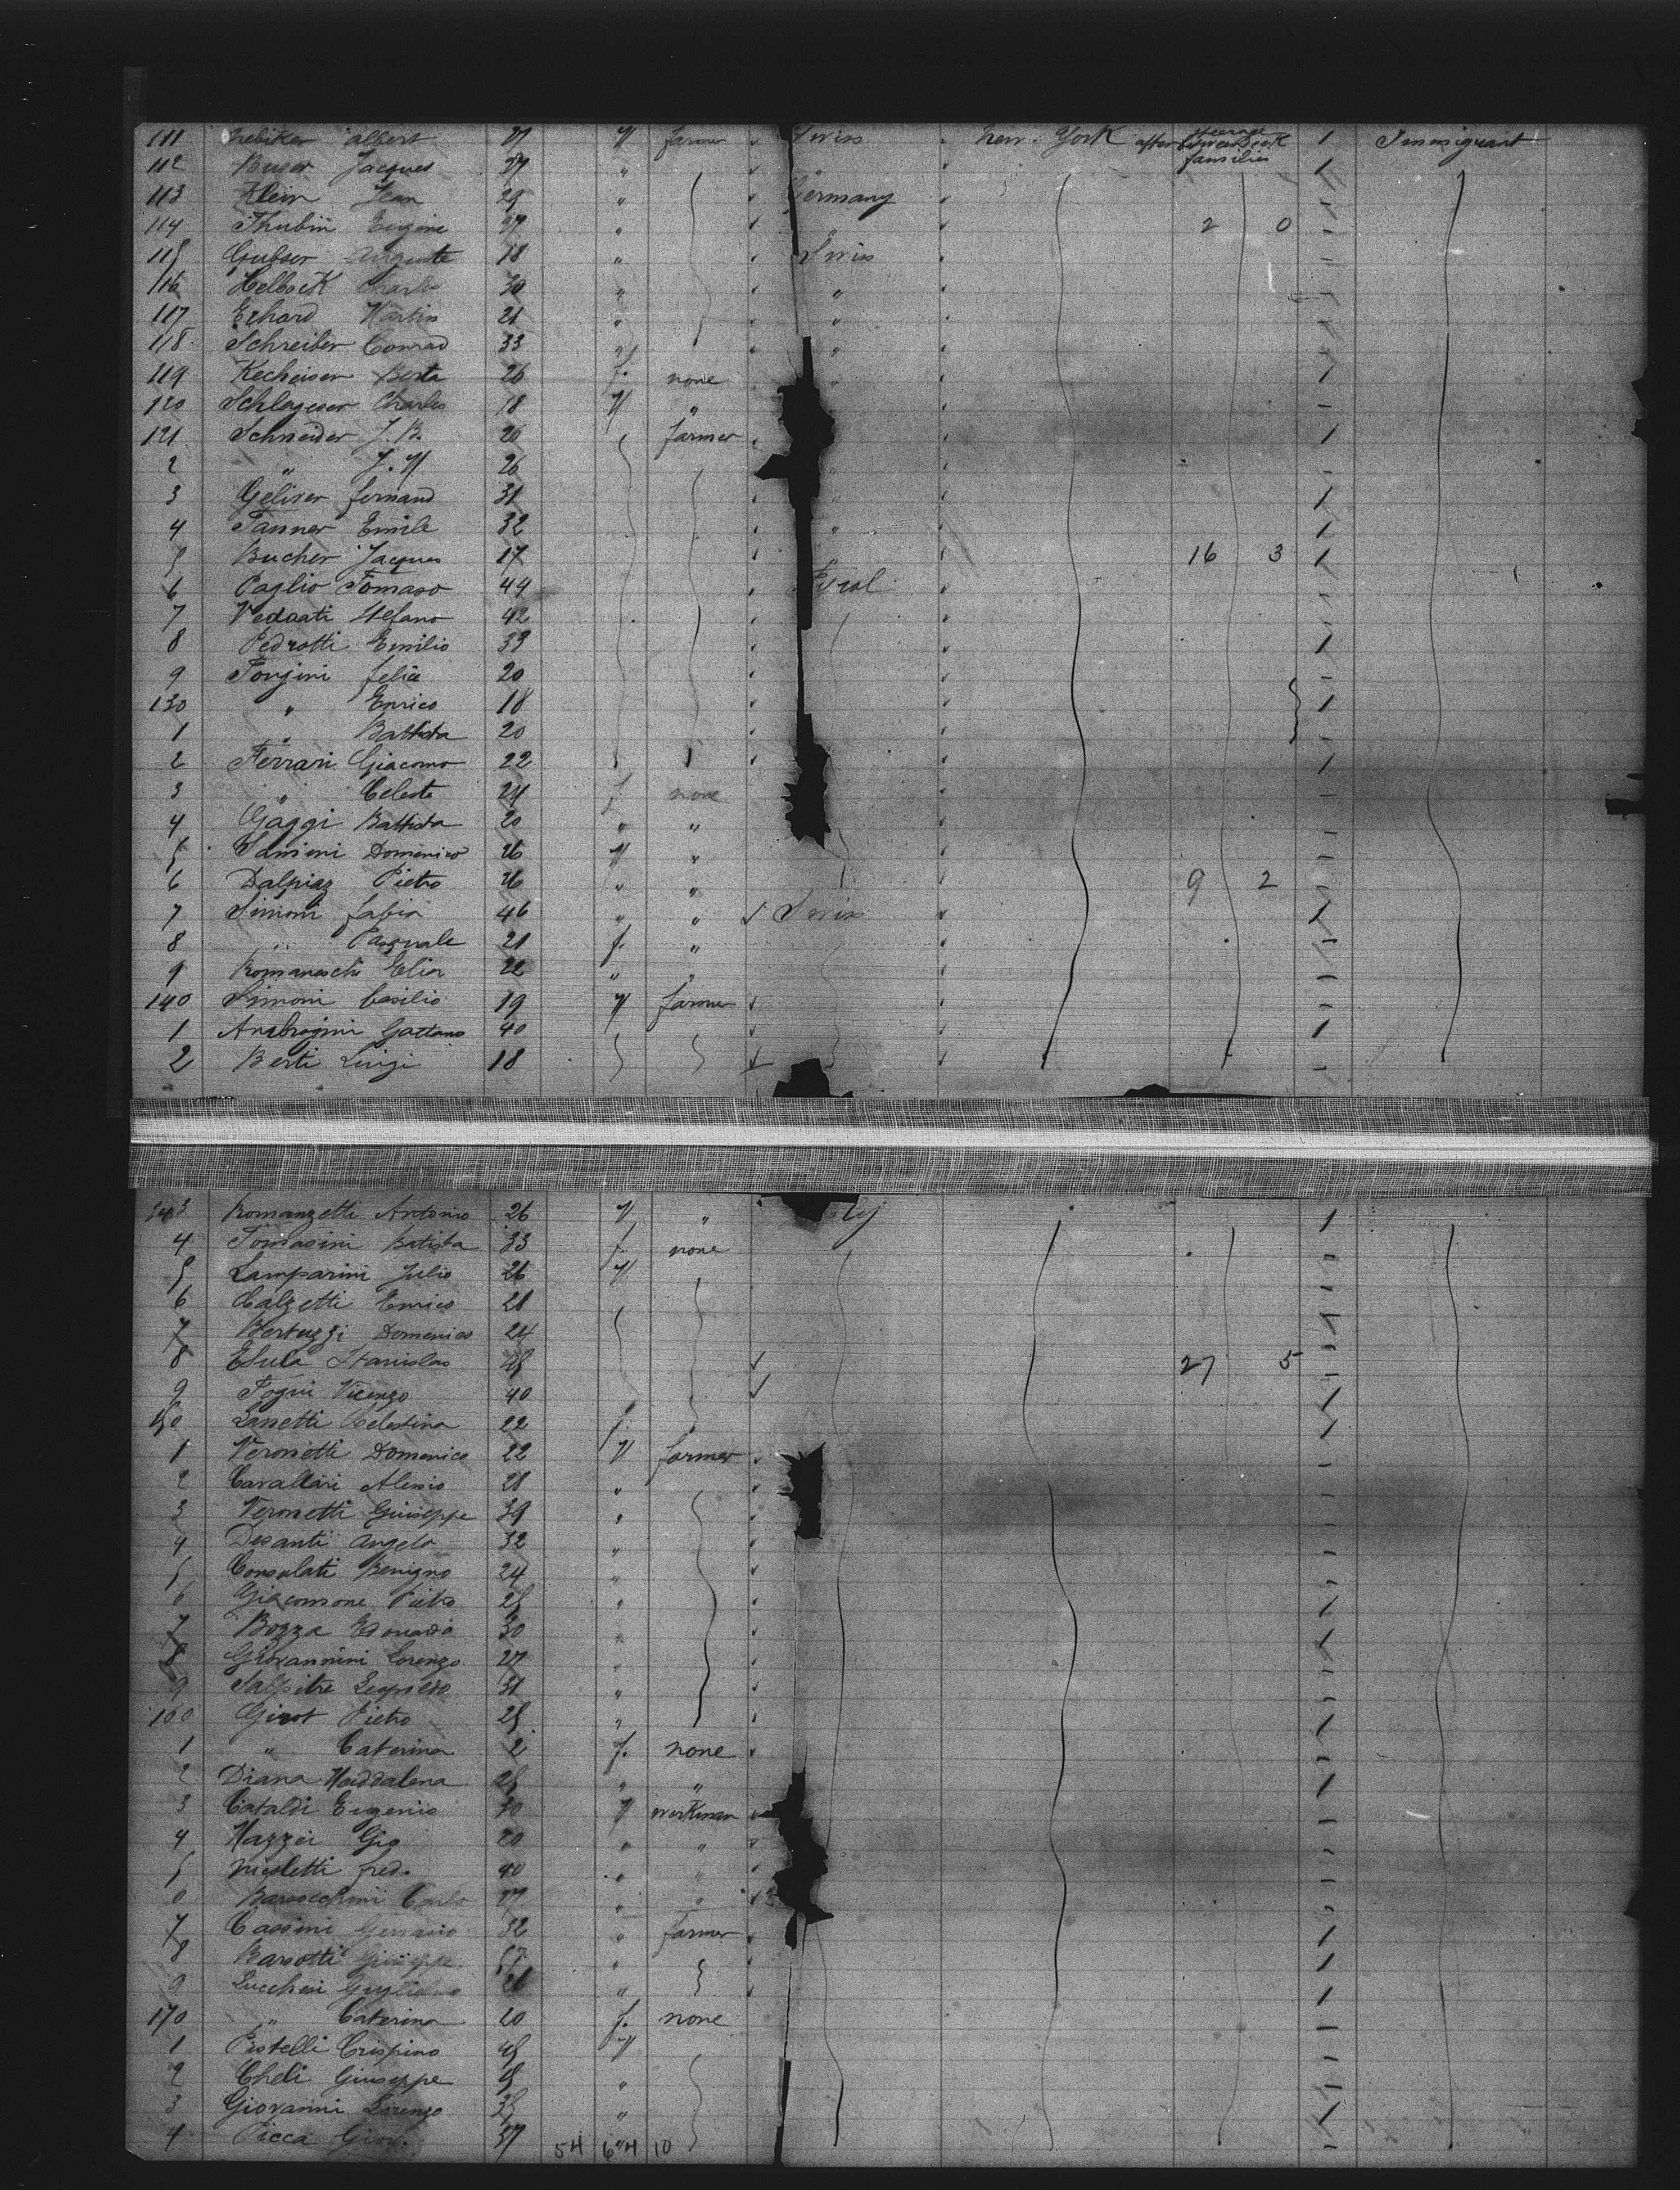 111 Nebiker Albert 27 M farmer Swiss New-York after steerage between Deck families 1 Immigrant
112 Buser Jacques 27 " 1
113 Klein Jean 29 " Germany -
114 Eugene 27 " 2 0 -
115 Gubser Auguste 18 " Swiss -
116 Helbock Charles 30 " " -
117 Erhard Martin 21 " " -
118 Schreiber Conrad 33 " " 1
119 Kecheisen Berta 26 f. none " 1
120 Charles 18 M " -
121 Schneider J. B. 26 farmer 1
2 " J. M 26 -
3 fernand 31 1
4 Tanner Emile 32 " 1
5 Bucher Jacques 17 " 16 3 1
6 Paglio Tomaso 44 Tirol -
7 Stefano 42 -
8 Pedrotti Emilio 39 1
9 felice 20 -
130 " Enrico 18 1
1 " Battista 20 -
2 Ferrari Giacomo 22 1
3 " Celeste 24 f. none -
4 Gaggi Battista 20 " " -
5 Domenico 26 M " -
6 Dalpiaz Pietro 26 " " 9 2 -
7 Simoni fabio 46 " " Swiss 1
8 " Pasquale 21 f. " -
9 Romaneschi Elia 22 " " -
140 Simoni basilio 19 M farmer -
1 Gaetano 40 1
2 Berti Luigi 18 -
143 Romanzetti Antonio 26 M " 1
4 Tomasini Batista 33 f. none -
5 Lamparini Julio 26 M -
6 Calzetti Enrico 28 -
7 Bertuzzi Domenico 24 1
8 Stanislao 25 27 5 -
9 Togni Vicenzo 40 1
150 Zanetti Celestina 22 f. 1
1 Veronetti Domenico 22 M farmer -
2 Cavallari Alessio 28 " -
3 Veronetti Giuseppe 39 " -
4 Desanti Angelo 32 " -
5 Consolati Benigno 24 " -
6 Giacomone Pietro 25 " 1
7 Bozza Edouardo 30 " 1
8 Giovannini Lorenzo 27 " -
9 Leopoldo 31 " -
160 Girot Pietro 25 " 1
1 " Caterina 2 f. none -
2 Diana Maddalena 25 " " 1
3 Cataldi Eugenio 30 M workman -
4 Mazzei Gio 20 " " -
5 Nicoletti fred. 40 " " -
6 Carlo 27 " " -
7 Cassini 32 " farmer 1
8 Barsotti Giuseppe 57 " 1
9 Lucchesi " 1
170 " Caterina 20 f. none -
1 Pistelli Crispino 45 M -
2 Cheli Giuseppe " -
3 Giovanni Lorenzo 35 " 1
4 Picca Giov. 37 54 64 10 -